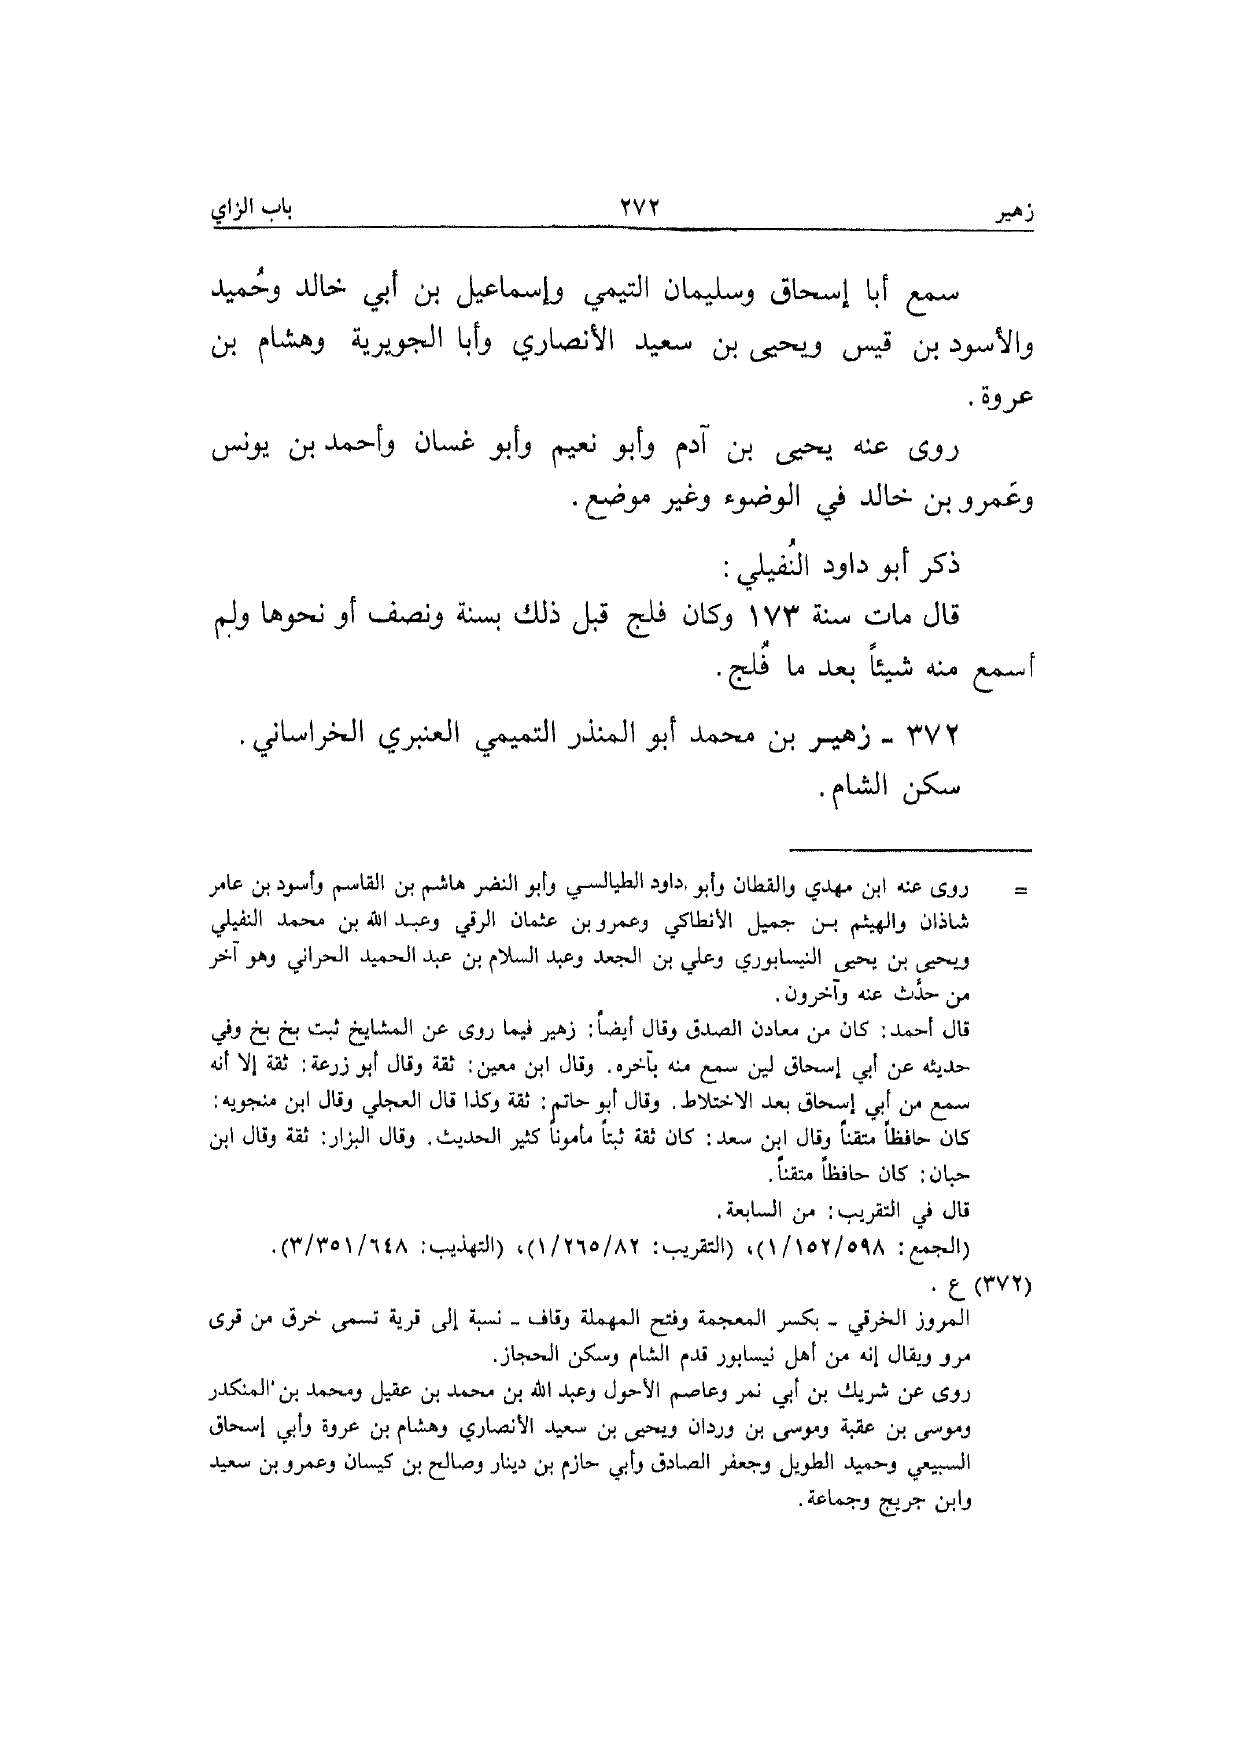 زهير ٢٧٢ باب الزاي
سمع أبا إسحاق وسليمان التيمي وإسماعيل بن أبي خالد وحُميد
والأسود بن قيس ويحيى بن سعيد الأنصاري وأبا الجويرية وهشام بن
عروة .
روى عنه يحيى بن آدم وأبو نعيم وأبو غسان وأحمد بن يونس
وعَمرو بن خالد في الوضوء وغير موضع .
ذكر أبو داود النُفيلي :
قال مات سنة ١٧٣ وكان فلج قبل ذلك بسنة ونصف أو نحوها ولم
أسمع منه شيئاً بعد ما فُلج .
٣٧٢ ـ زهير بن محمد أبو المنذر التميمي العنبري الخراساني .
سكن الشام .
= روى عنه ابن مهدي والقطان وأبو داود الطيالسي وأبو النضر هاشم بن القاسم وأسود بن عامر
شاذان والهيثم بن جميل الأنطاكي وعمرو بن عثمان الرقي وعبد الله بن محمد النفيلي
ويحيى بن يحيى النيسابوري وعلي بن الجعد وعبد السلام بن عبد الحميد الحراني وهو آخر
من حدَّث عنه وآخرون .
قال أحمد : كان من معادن الصدق وقال أيضاً : زهير فيما روى عن المشايخ ثبت بخ بخ وفي
حديثه عن أبي إسحاق لين سمع منه بآخره . وقال ابن معين : ثقة وقال أبو زرعة : ثقة إلا أنه
سمع من أبي إسحاق بعد الاختلاط . وقال أبو حاتم : ثقة وكذا قال العجلي وقال ابن منجويه :
كان حافظاً متقناً وقال ابن سعد : كان ثقة ثبتاً مأموناً كثير الحديث . وقال البزار : ثقة وقال ابن
حبان : كان حافظاً متقناً .
قال في التقريب : من السابعة .
(الجمع : ١/١٥٢/٥٩٨)، (التقريب : ١/٢٦٥/٨٢)، (التهذيب : ٣/٣٥١/٦٤٨).
(٣٧٢) ع .
المروز الخرقي ـ بكسر المعجمة وفتح المهملة وقاف ـ نسبة إلى قرية تسمى خرق من قرى
مرو ويقال إنه من أهل نيسابور قدم الشام وسكن الحجاز .
روى عن شريك بن أبي نمر وعاصم الأحول وعبد الله بن محمد بن عقيل ومحمد بن المنكدر
وموسى بن عقبة وموسى بن وردان ويحيى بن سعيد الأنصاري وهشام بن عروة وأبي إسحاق
السبيعي وحميد الطويل وجعفر الصادق وأبي حازم بن دينار وصالح بن كيسان وعمرو بن سعيد
وابن جريج وجماعة .